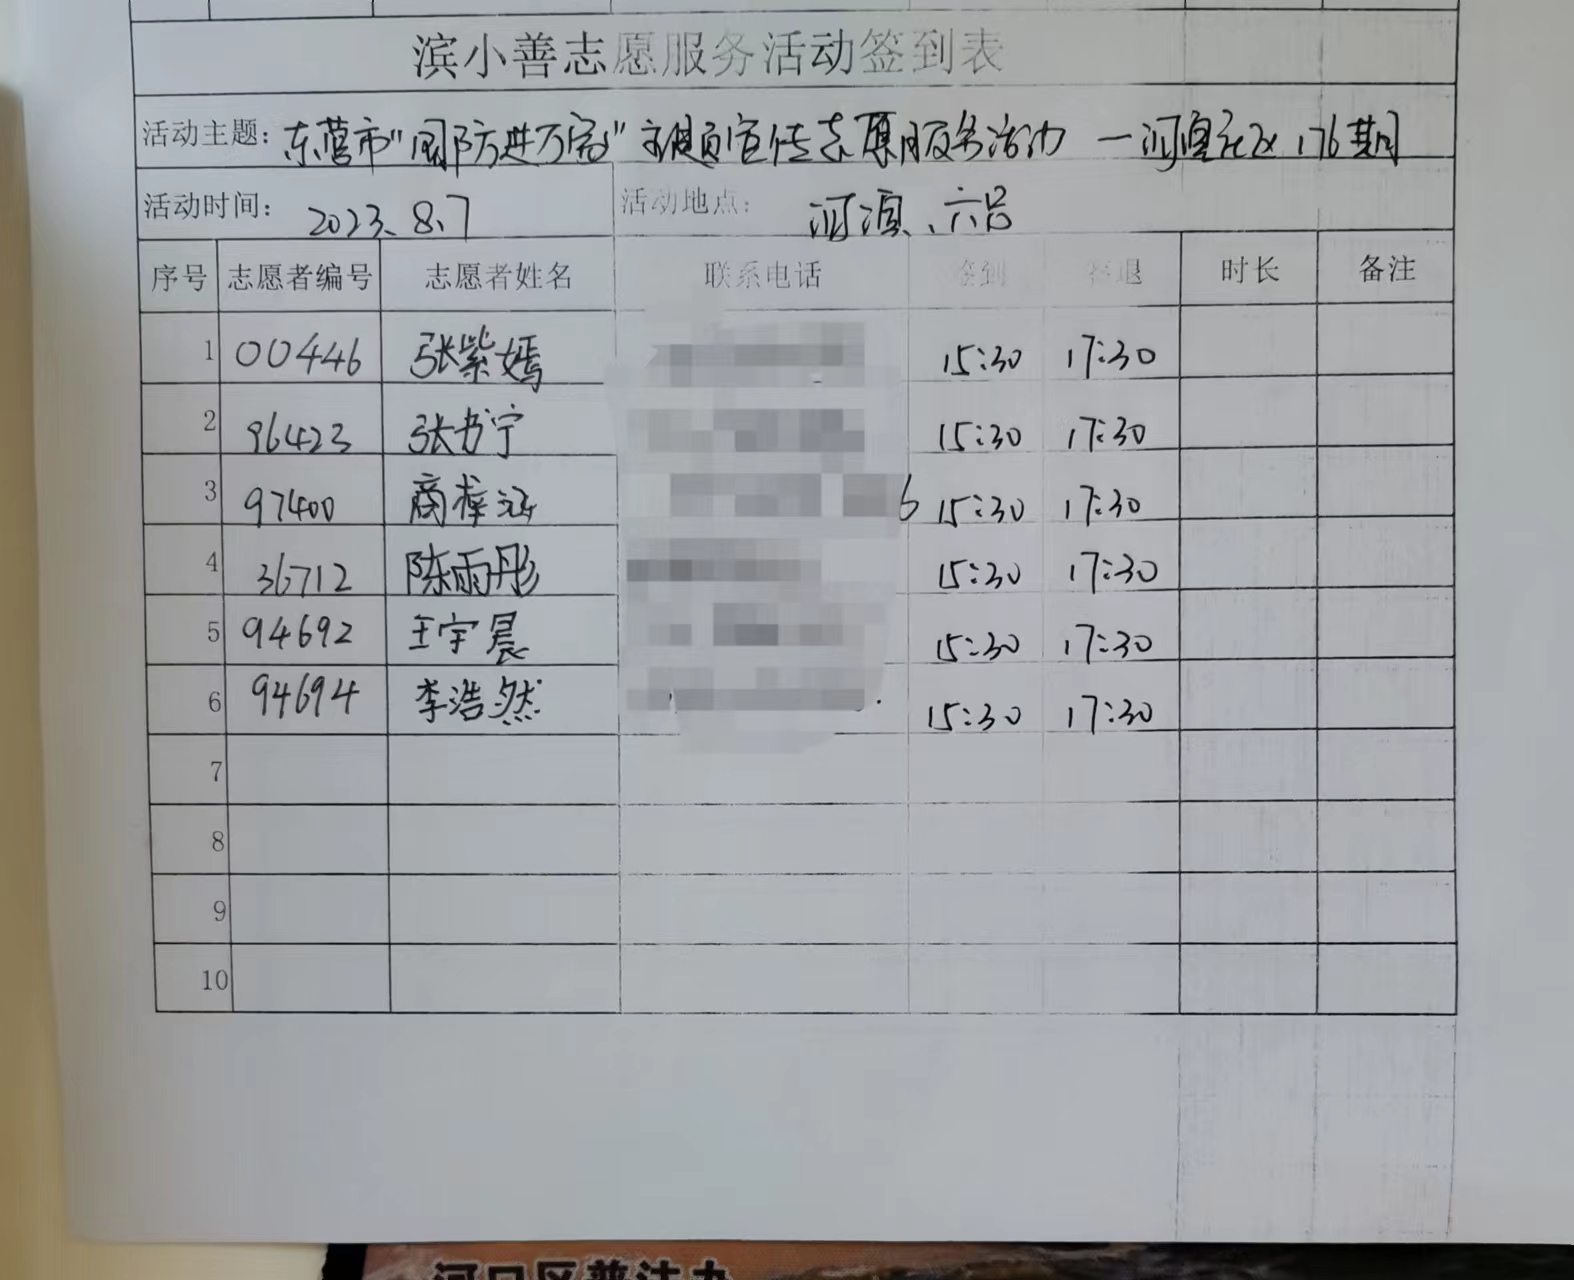 滨小善志愿服务活动签到表
活动主题: 东营市"国防进万家"主题宣传志愿服务活动 一河滨社区176期
活动时间: 2023.8.7 活动地点: 河滨、六号
序号 志愿者编号 志愿者姓名 联系电话 签到 签退 时长 备注
1 00446 张紫嫣 15:30 17:30
2 96423 张书宁 15:30 17:30
3 97400 商梓涵 6 15:30 17:30
4 36712 陈雨彤 15:30 17:30
5 94692 王宇晨 15:30 17:30
6 94694 李浩然 15:30 17:30
7
8
9
10
河口区普法办